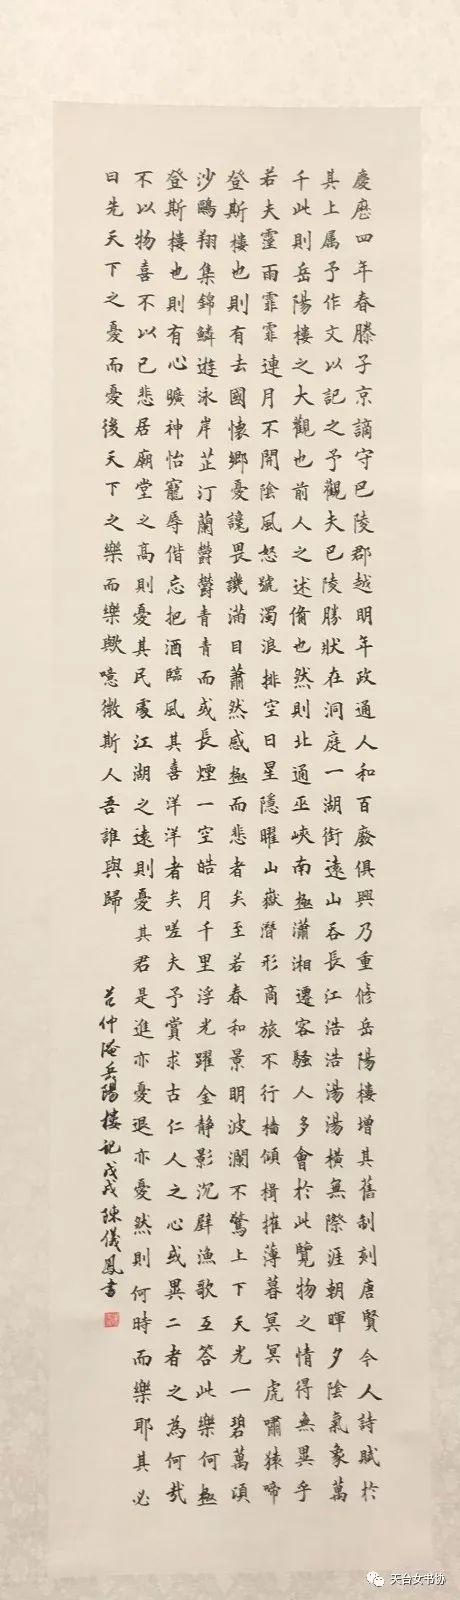 慶歷四年春滕子京謫守巴陵郡越明年政通人和百廢俱興乃重修岳陽樓增其舊制刻唐賢今人詩賦於
其上属予作文以記之予觀夫巴陵勝狀在洞庭一湖銜遠山吞長江浩浩湯湯橫無際涯朝暉夕陰氣象萬
千此則岳陽樓之大觀也前人之述備也然則北通巫峽南極瀟湘遷客騷人多會於此覽物之情得無異乎
若夫霪雨霏霏連月不開陰風怒號濁浪排空日星隱曜山嶽潛形商旅不行檣傾楫摧薄暮冥冥虎嘯猿啼
登斯樓也則有去國懷鄉憂讒畏譏滿目蕭然感極而悲者矣至若春和景明波瀾不驚上下天光一碧萬頃
沙鷗翔集錦鱗遊泳岸芷汀蘭鬱鬱青青而或長煙一空皓月千里浮光躍金静影沉璧漁歌互答此樂何極
登斯樓也則有心曠神怡寵辱偕忘把酒臨風其喜洋洋者矣嗟夫予賞求古仁人之心或異二者之為何哉
不以物喜不以己悲居廟堂之高則憂其民處江湖之遠則憂其君是進亦憂退亦憂然則何時而樂耶其必
曰先天下之憂而憂後天下之樂而樂歟噫微斯人吾誰與歸 范仲淹岳陽樓記戊戌陳儀鳳書
天台女书协